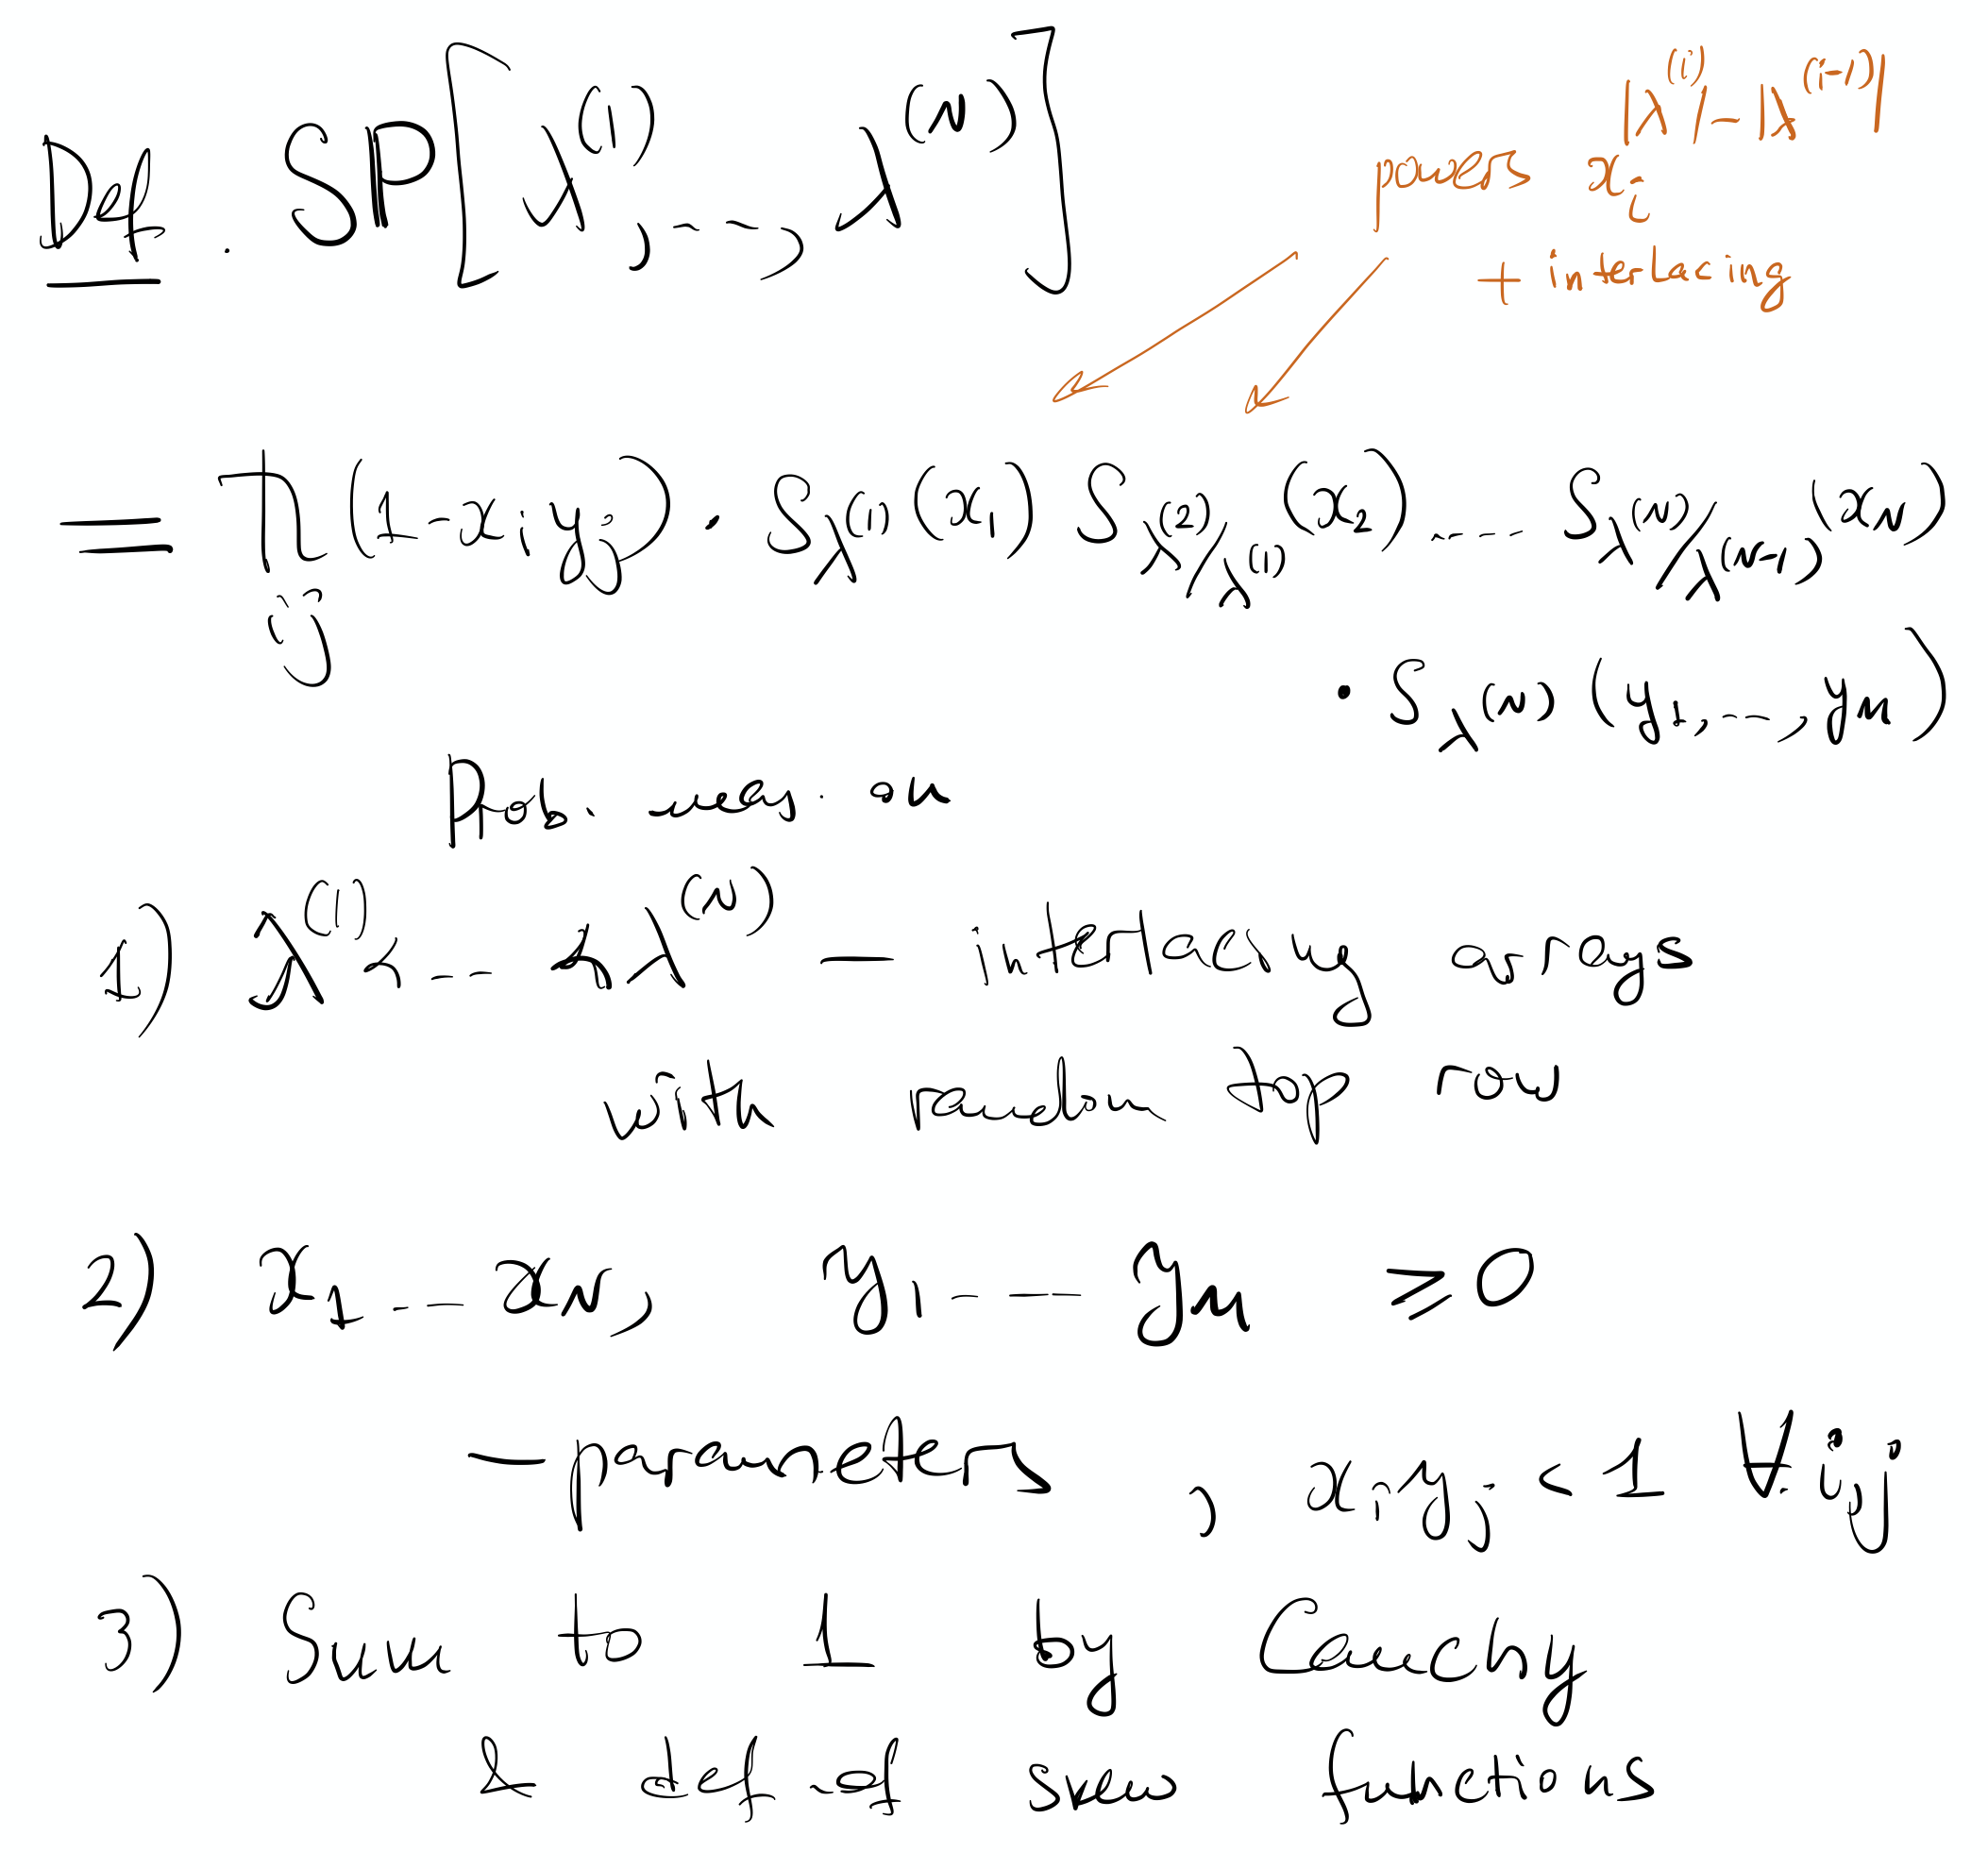 Def. SP[λ^(1), ..., λ^(N)]
powers x_i^{|λ^(i)| - |λ^(i-1)|}
+ interlacing
= ∏_{i,j} (1 - x_i y_j) · S_{λ^(1)}(x_1) S_{λ^(2)/λ^(1)}(x_2) ... S_{λ^(N)/λ^(N-1)}(x_N)
· S_{λ^(N)}(y_1, ..., y_M)
Prob. meas. on
1) λ^(1) ≺ ... ≺ λ^(N) — interlacing arrays
with random top row
2) x_1 ... x_N, y_1 ... y_M ≥ 0
— parameters, x_i y_j < 1 ∀ i,j
3) Sum to 1 by Cauchy
& def. of skew functions